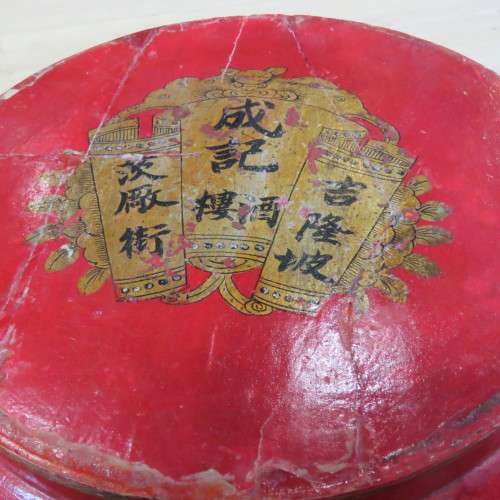 吉隆坡
成記
酒樓
茨厰街